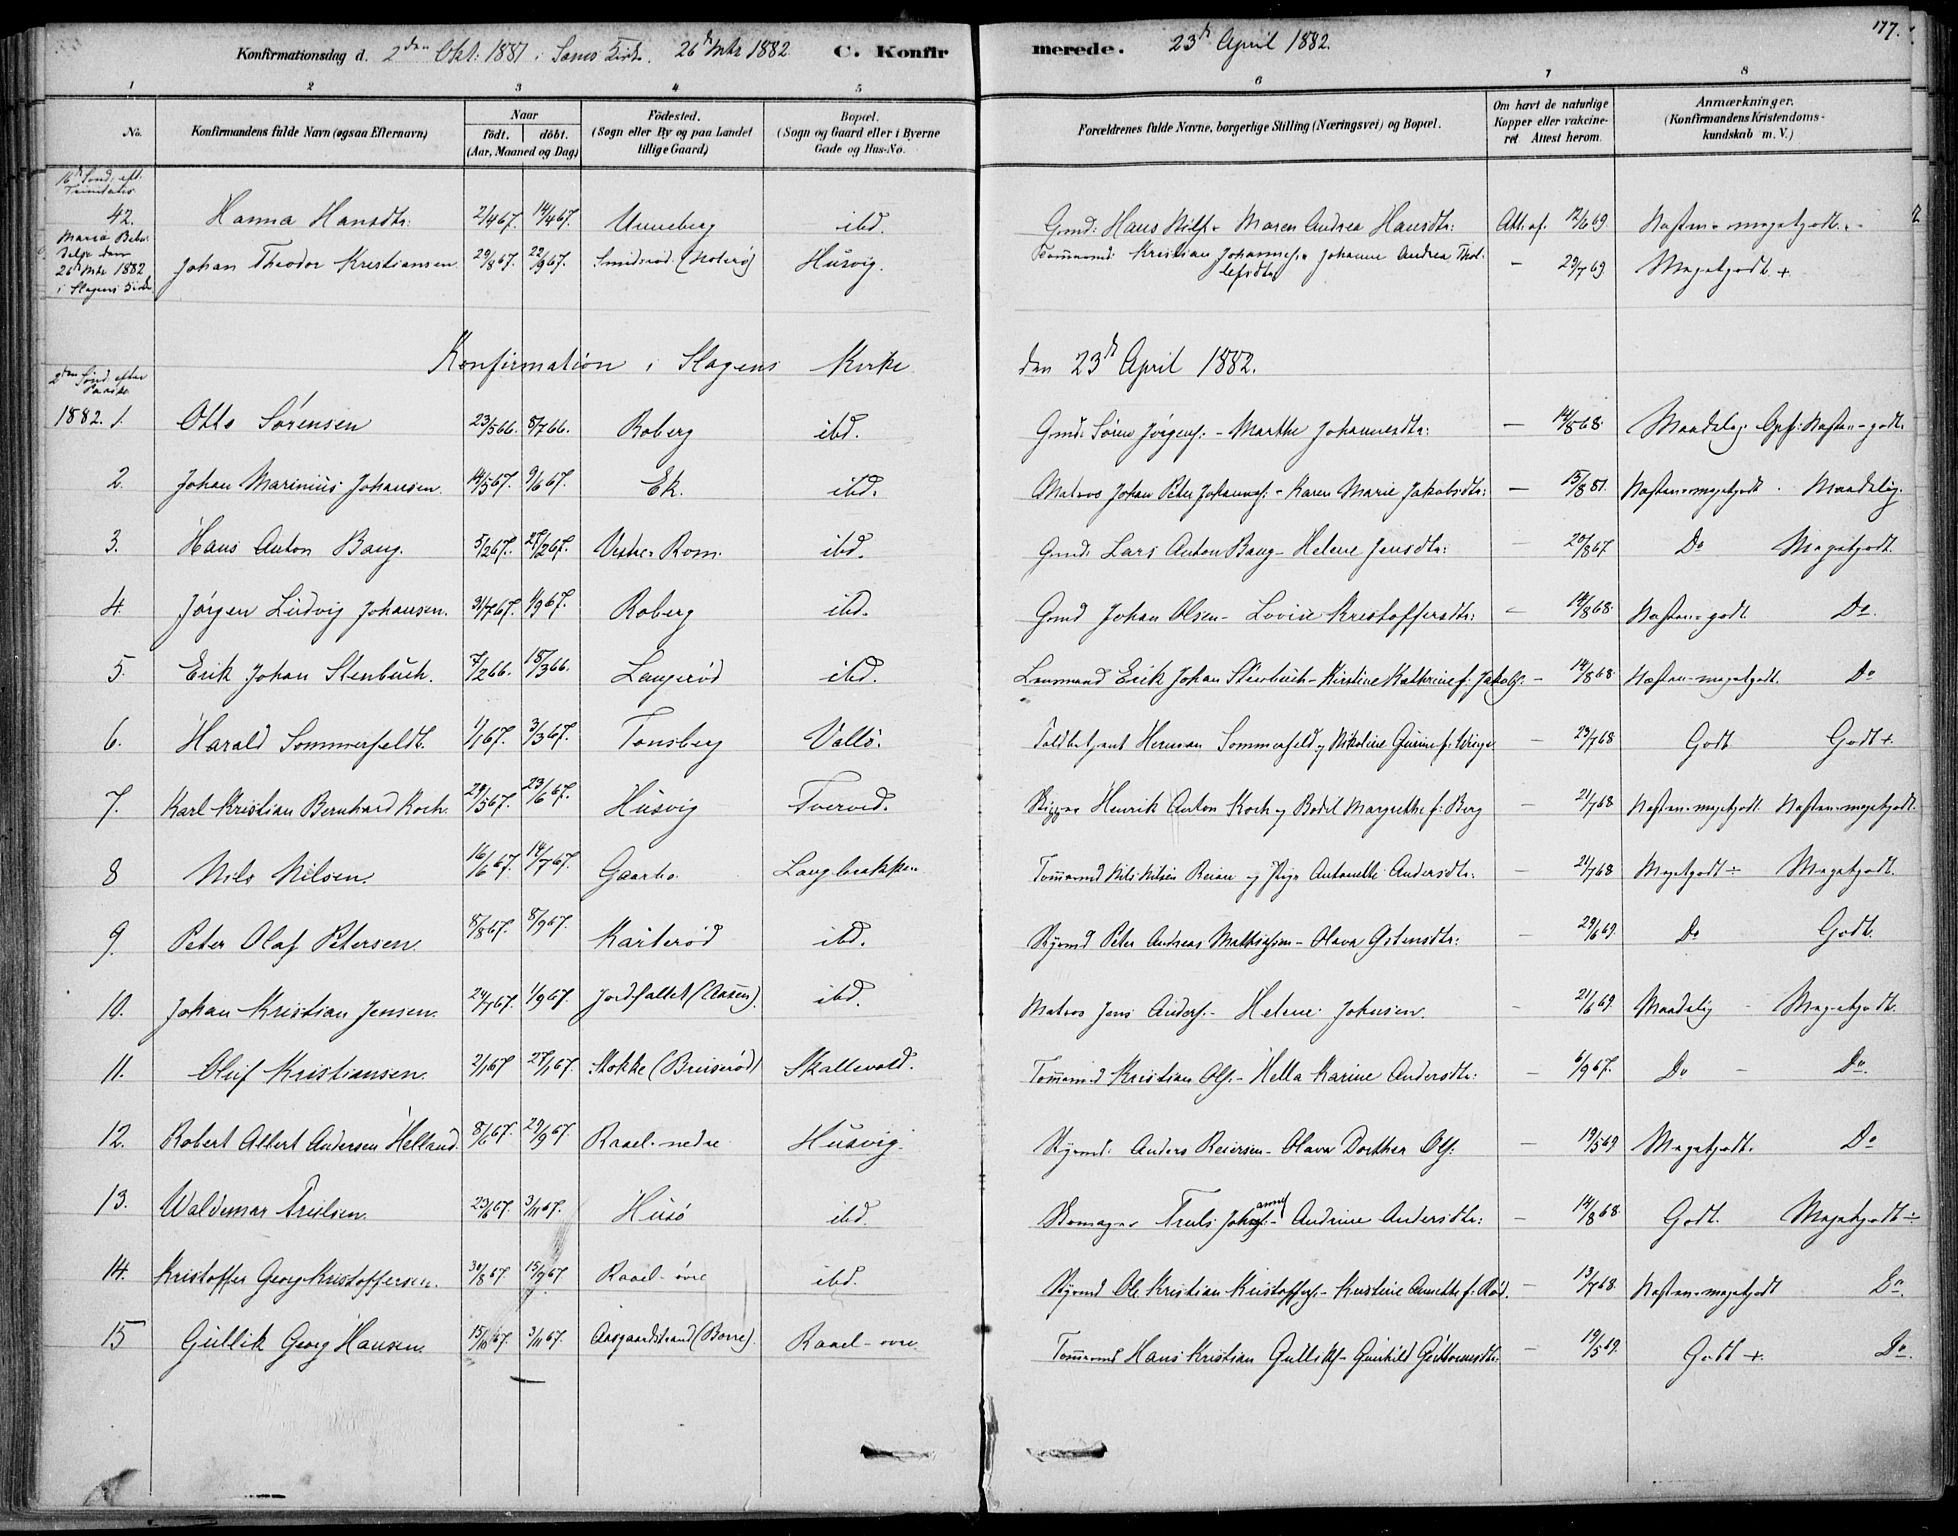 177.
Konfirmationsdag d. 2den Okt: 1881 i Sems Kirke. 26de Mts 1882 C. Konfirmerede. 23de April 1882.
1 2 3 4 5 6 7 8
No. Konfirmandens fulde Navn (ogsaa Efternavn) Naar födt. döbt. (Aar, Maaned og Dag) Födested. (Sogn eller By og paa Landet tillige Gaard) Bopæl. (Sogn og Gaard eller i Byerne Gade og Hus-No. Forældrenes fulde Navne, borgerlige Stilling (Næringsvei) og Bopæl. Om havt de naturlige Kopper eller vakcineret. Attest herom. Anmærkninger. (Konfirmandens Kristendomskundskab m. V.)
16de Sønd. eft. Trinitatis
42. Hanna Hansdtr: 2/4 67. 14/4 67. Unneberg ibd. Gmd: Hans Nilss. Maren Andrea Hansdtr: Att. af. 12/6 69. Næsten meget godt.
Maria Bebudelse den 26de Mts 1882 i Slagens Kirke
Johan Theodor Kristiansen 29/8 67. 22/9 67. Smidsrød (Nøterø) Husvig. Tømmermd: Kristian Johanness. Johanne Andrea Thollefsdtr — 29/7 69 Megetgodt +
Konfirmation i Slagens Kirke den 23de April 1882.
2den Sønd. efter Paaske
1882. 1. Otto Sörensen 23/5 66. 8/7 66. Roberg ibd. Gmd: Sören Jörgens. - Marthe Johannesdtr: — 14/8 68. Maadelig. Opf: Næsten - godt.
2. Johan Marinius Johansen. 14/5 67. 9/6 67. Ek. ibd. Matros Johan Peter Johanness. - Karen Marie Jakobsdtr: — 15/8 81. Næsten megetgodt. Maadelig.
3. Hans Anton Baug. 5/2 67. 27/2 67. Vestre Rom. ibd. Gmd: Lars Anton Baug - Helene Jensdtr: — 20/8 67 Do Megetgodt.
4. Jörgen Ludvig Johansen. 31/7 67. 1/9 67. Roberg ibd. Gmd Johan Olsen - Lovise Kristoffersdtr: — 14/8 68. Næsten godt. Do.
5. Erik Johan Stenbuch. 7/2 66. 18/3 66. Langerød ibd. Lensmand Erik Johan Stenbuch - Kirstine Kathrine f. Jakobs. — 14/8 68. Næsten megetgodt. Do
6. Harald Sommerfeldt. 1/1 67. 3/3 67. Tonsberg Vallö. Toldbetjent Herman Sommerfeld og Nikoline Gurine f. — 23/7 68 Godt Godt +.
7. Karl Kristian Bernhard Koch. 29/5 67. 23/6 67. Husvig Tverved. Skipper Henrik Anton Koch og Bodil Margrethe f. Berg — 21/7 68 Næsten megetgodt. Næsten megetgodt.
8 Nils Nilsen. 16/6 67. 14/7 67. Gaarbo. Langbrækken Tømmermd Nils Nilsen Reine og Inger Antonette Andersdtr: — 21/7 68 Megetgodt ÷ Megetgodt.
9. Peter Olaf Petersen. 8/8 67. 8/9 67. Karterød ibd. Styrmd Peter Andreas Mathisen - Olava Ostensdtr: — 29/6 69. Do Godt.
10. Johan Kristian Jensen. 24/7 67. 1/9 67. Jordfallet (Aasen) ibd. Matros Jens Anders. - Helene Johnsen. — 21/6 69. Maadelig — Megetgodt.
11. Oluf Kristiansen. 2/1 67 27/1 67. Stokke (Bruserød) Skallevold. Tømmermd Kristian Ols. - Hella Karine Andersdtr: — 6/9 67. Do — Do.
12. Robert Albert Andersen Helland. 8/6 67. 29/9 67. Raael - nedre Husvig. Styrmd: Anders Reiersen - Olava Dorthea Ols. — 19/5 69 Megetgodt. Do
13. Waldemar Trulsen. 23/6 67. 3/11 67. Husö ibd. Skomager Truls Johannes. - Andrine Andersdtr: — 14/8 68. Godt. Megetgodt ÷
14. Kristoffer Georg Kristoffersen. 30/8 67. 15/9 67 Raael - övre ibd. Styrmd Ole Kristian Kristoffers. - Kirstine Annette f. Röd. — 13/7 68. Næsten megetgodt Do.
15 Gullik Georg Hansen. 15/10 67. 3/11 67. Aasgaardstrand (Borre). Raael - övre. Tømmermd Hans Kristian Gulliks. - Gunhild Guttormsdtr: 19/5 69. Godt +. Do.